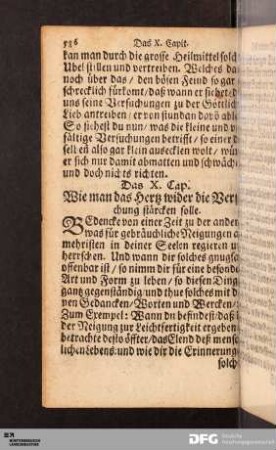 536 Das X. Capit.
kan man durch die grosse Heilmittel solch
Ubel stillen und vertreiben. Welches da
noch über das / den bösen Feind so gar
schrecklich fürkomt / daß wann er siehet d
uns seine Versuchungen zu der Göttlich
Lieb antreiben / er von stundan dar
So siehest du nun / was die kleine und v
fältige Versuchungen betrifft / so einer
sell en also gar klein ausecklen wolt / wür
er sich nur damit abmatten und schwäche
und doch nichts richten.
Das X. Cap.
Wie man das Herz wider die Ver
chung stärcken solle.
BEdencke von einer Zeit zu der ander
was für gebräuchliche Neigungen a
mehristen in deiner Seelen regieren u
herrschen. Und wann dir solches gnugsa
offenbar ist / so nimm dir für eine besonde
Art und Form zu leben / so diesen Ding
gantz gegenständig / und thue solches mit d
ven Gedancken / Worten und Wercken /
Zum Exempel: Wann du befindest / daß
der Neigung zur Leichtfertigkeit ergeben
betrachte desto öffter / das Elend deß mensc
lichen Lebens und wie dir die Erinnerung
solch
WÜRTTEMBERGISCHE
LANDESBIBLIOTHEK
DFG Deutsche
Forschungsgemeinschaft